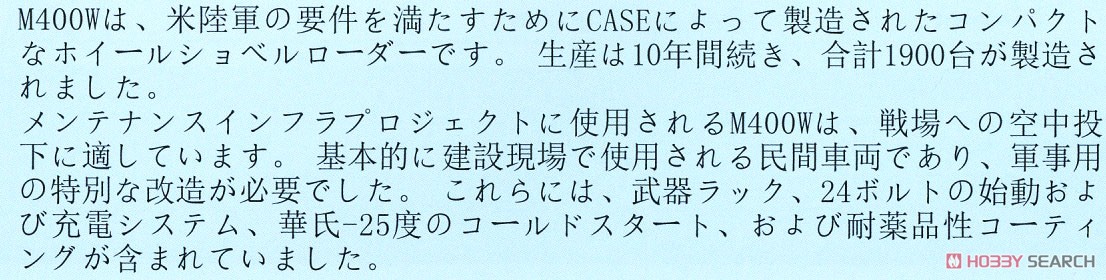 M400Wは、米陸軍の要件を満たすためにCASEによって製造されたコンパクト
なホイールショベルローダーです。 生産は10年間続き、合計1900台が製造さ
れました。
メンテナンスインフラプロジェクトに使用されるM400Wは、戦場への空中投
下に適しています。 基本的に建設現場で使用される民間車両であり、軍事用
の特別な改造が必要でした。 これらには、武器ラック、24ボルトの始動およ
び充電システム、華氏-25度のコールドスタート、および耐薬品性コーティ
ングが含まれていました。
HOBBY SEARCH